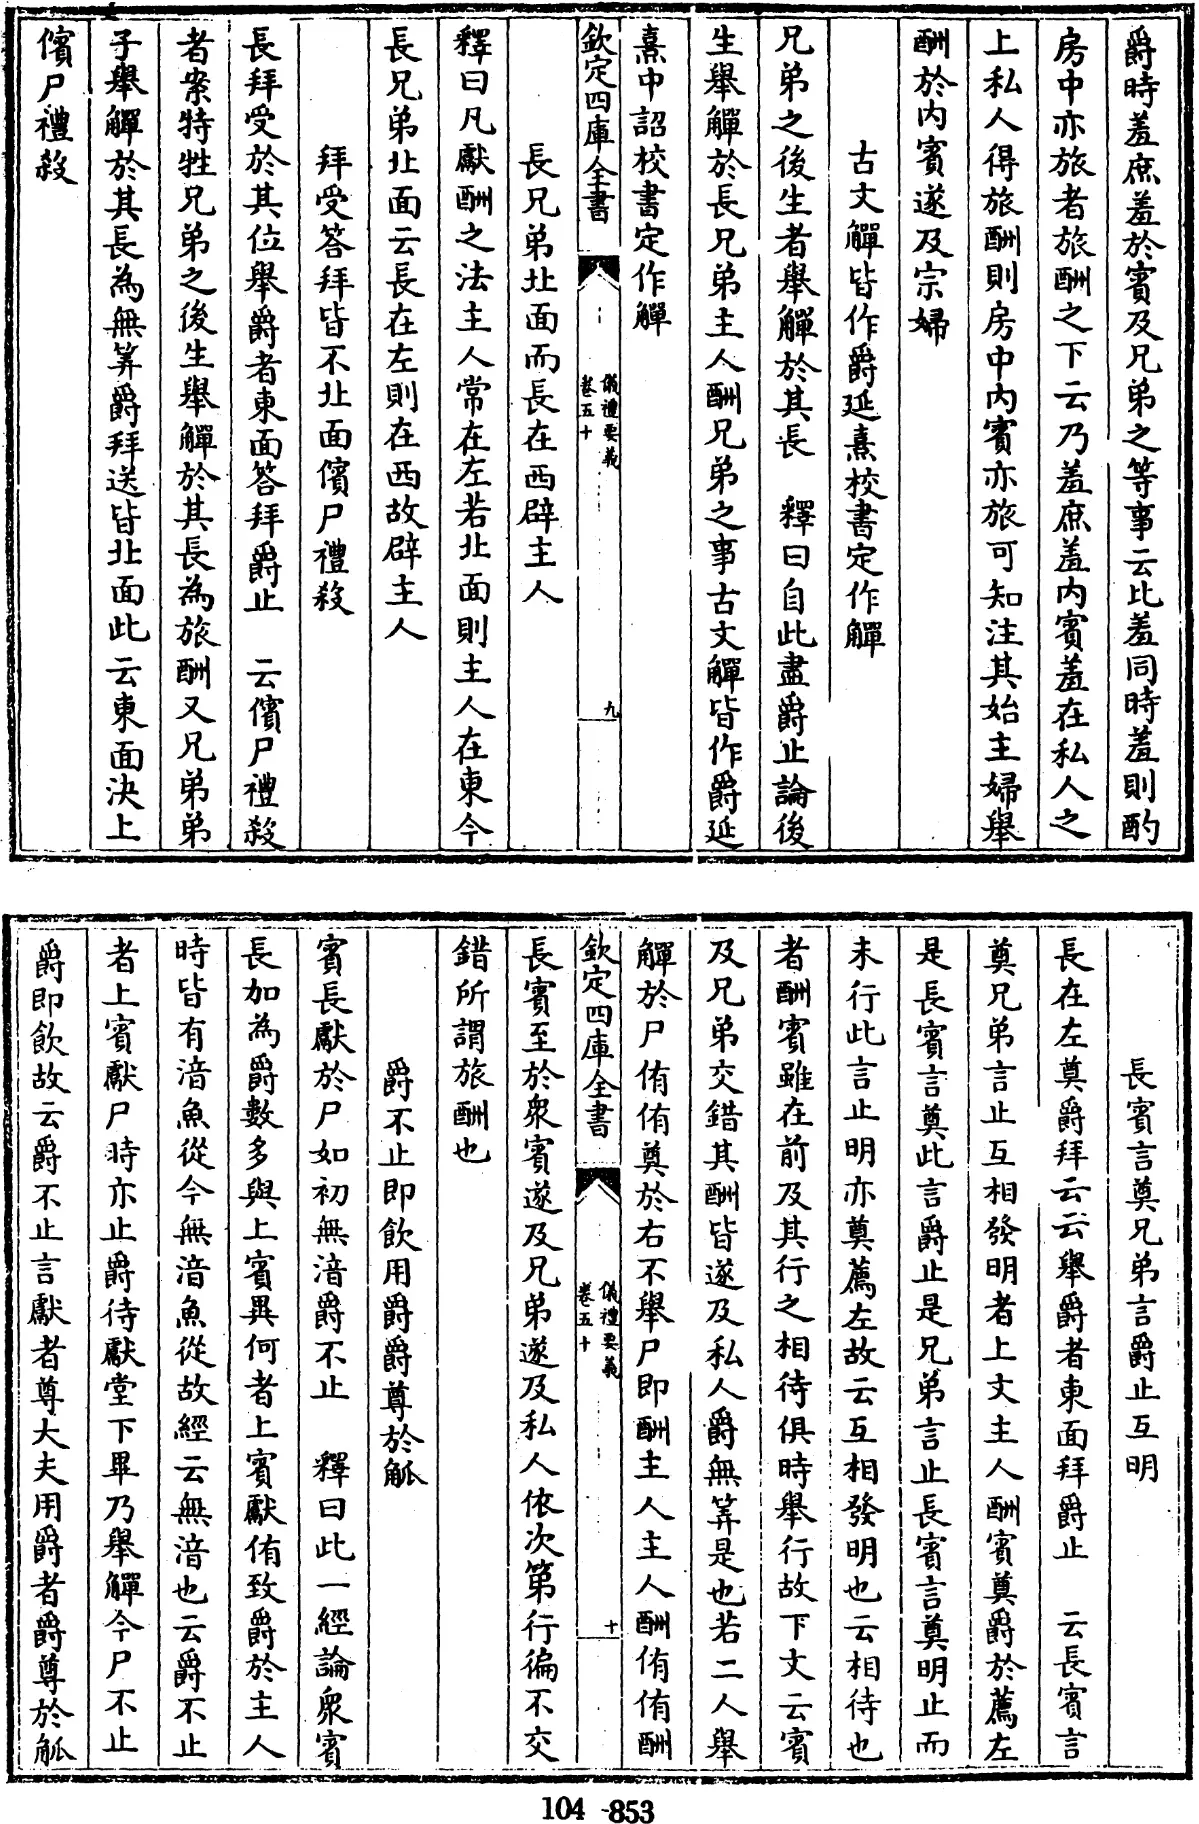 爵時羞庶羞於賓及兄弟之等事云比羞同時羞則酌
房中亦旅者旅酬之下云乃羞庶羞内賓羞在私人之
上私人得旅酬則房中内賓亦旅可知注其始主婦舉
酬於内賓遂及宗婦
古文觶皆作爵延熹校書定作觶
兄弟之後生者舉觶於其長 釋曰自此盡爵止論後
生舉觶於長兄弟主人酬兄弟之事古文觶皆作爵延
熹中詔校書定作觶
欽定四庫全書
儀禮要義
卷五十
九
長兄弟北面而長在西辟主人
釋曰凡獻酬之法主人常在左若北面則主人在東今
長兄弟北面云長在左則在西故辟主人
拜受答拜皆不北面儐尸禮殺
長拜受於其位舉爵者東面答拜爵止 云儐尸禮殺
者案特牲兄弟之後生舉觶於其長為旅酬又兄弟弟
子舉觶於其長為無筭爵拜送皆北面此云東面決上
儐尸禮殺
長賓言奠兄弟言爵止互明
長在左奠爵拜云云舉爵者東面拜爵止 云長賓言
奠兄弟言止互相發明者上文主人酬賓奠爵於薦左
是長賓言奠此言爵止是兄弟言止長賓言奠明止而
未行此言止明亦奠薦左故云互相發明也云相待也
者酬賓雖在前及其行之相待俱時舉行故下文云賓
及兄弟交錯其酬皆遂及私人爵無筭是也若二人舉
觶於尸侑侑奠於右不舉尸即酬主人主人酬侑侑酬
欽定四庫全書
儀禮要義
卷五十
十
長賓至於衆賓遂及兄弟遂及私人依次第行徧不交
錯所謂旅酬也
爵不止即飲用爵爵尊於觚
賓長獻於尸如初無湆爵不止 釋曰此一經論衆賓
長加為爵數多與上賓異何者上賓獻侑致爵於主人
時皆有湆魚從今無湆魚從故經云無湆也云爵不止
者上賓獻尸時亦止爵待獻堂下畢乃舉觶今尸不止
爵即飲故云爵不止言獻者尊大夫用爵者爵尊於觚
104-853